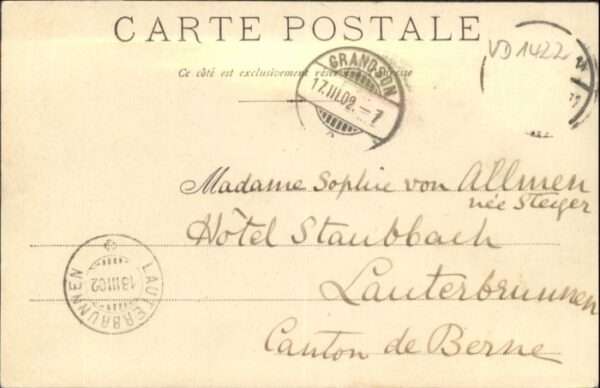 CARTE POSTALE
VD 1422
Ce côté est exclusivement réservé à l'adresse
GRANDSON
17.III.02.–7
Madame Sophie von Allmen
née Steiger
Hôtel Staubbach
Lauterbrunnen
Canton de Berne
LAUTERBRUNNEN
18III02